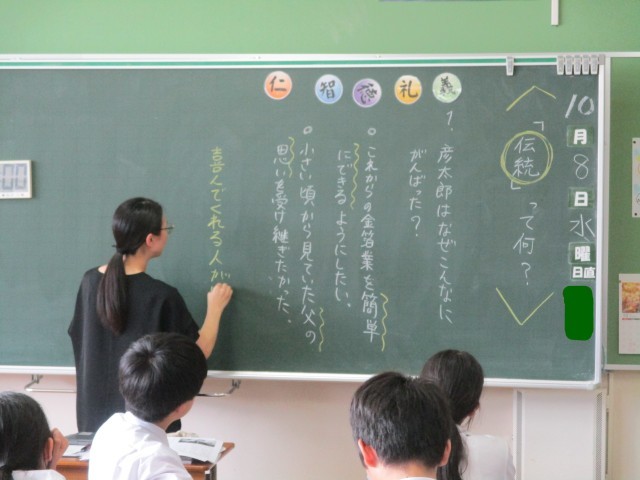 10月8日水曜
日直
「伝統」って何?
1、彦太郎はなぜこんなに
がんばった?
○これからの金箔業を簡単
にできるようにしたい。
○小さい頃から見ていた父の
思いを受け継ぎたかった。
喜んでくれる人が
義
礼
智
仁
00